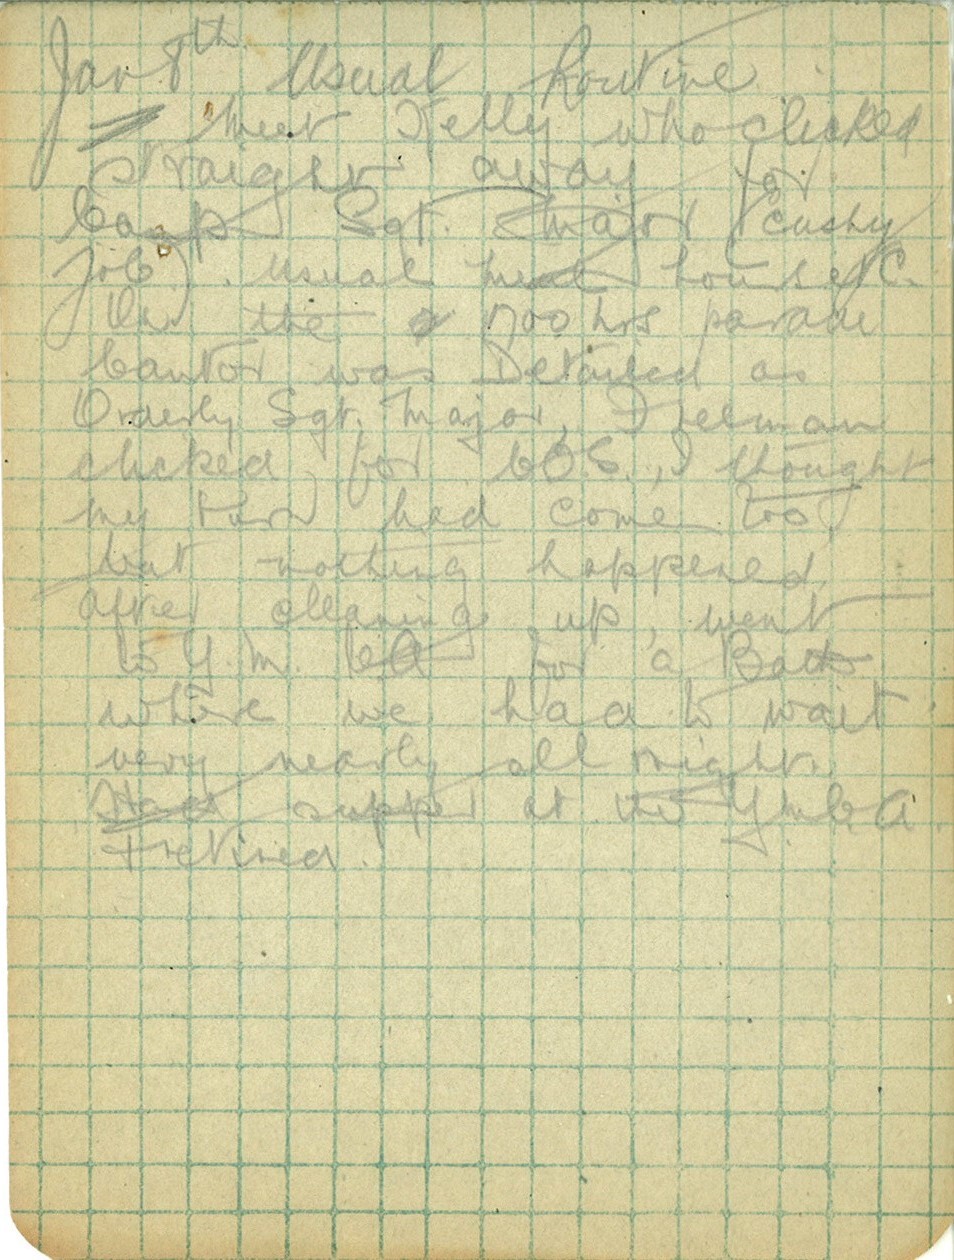 Jan 8th Usual Routine.
Meet Kelly who clicked
straight away for
Camp Sgt. Major (cushy
job). Usual meal hours etc.
On the 1700 hrs parade
Cantor was Detailed as
Orderly Sgt. Major,
clicked for COS., I thought
my turn had come too,
but nothing happened,
After cleaning up, went
to Y.M.CA for a Bath
where we had to wait
very nearly all night.
Had supper at the YMCA.
+ retired.